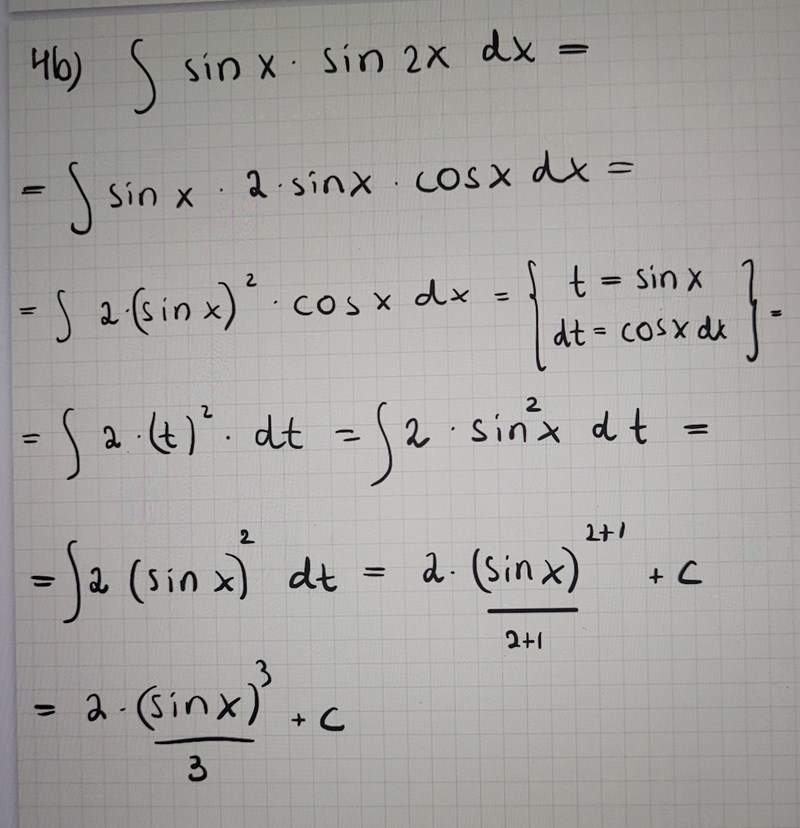 4b) ∫ sin x · sin 2x dx =
= ∫ sin x · 2 · sinx · cosx dx =
= ∫ 2·(sin x)² · cos x dx = { t = sin x
dt = cosx dx } =
= ∫ 2 · (t)² · dt = ∫ 2 · sin²x dt =
= ∫ 2 (sin x)² dt = 2 · (sin x)²⁺¹ / 2+1 + C
= 2 · (sin x)³ / 3 + C